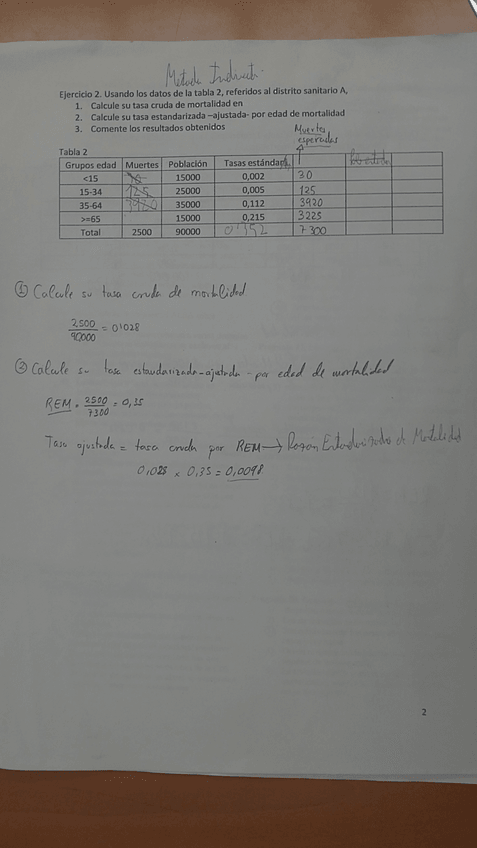 Método Indirecto
Ejercicio 2. Usando los datos de la tabla 2, referidos al distrito sanitario A,
1. Calcule su tasa cruda de mortalidad en
2. Calcule su tasa estandarizada –ajustada- por edad de mortalidad
3. Comente los resultados obtenidos
Muertes
esperadas
Tabla 2
Grupos edad Muertes Población Tasas estándar
<15 15000 0,002 30
15-34 125 25000 0,005 125
35-64 3920 35000 0,112 3920
>=65 15000 0,215 3225
Total 2500 90000 7300
① Calcule su tasa cruda de mortalidad
2500
/90000 = 0'028
② Calcule su tasa estandarizada-ajustada-por edad de mortalidad
REM = 2500/7300 = 0,35
Tasa ajustada = tasa cruda por REM → Razón Estandarizada de Mortalidad
0,028 x 0,35 = 0,0098
2